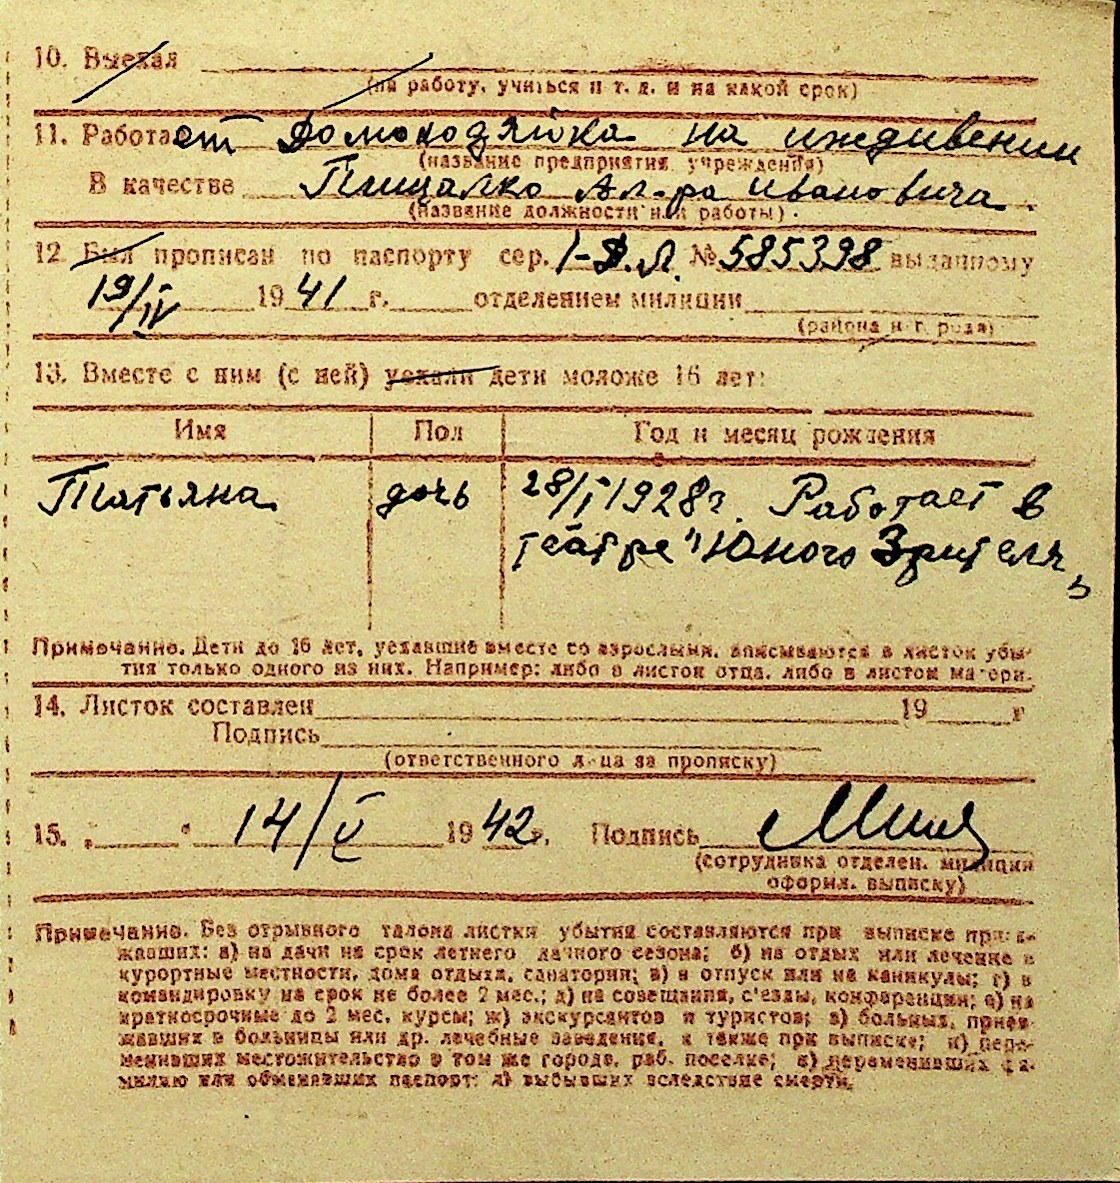 10. Выехал
(на работу, учиться и т. д. и на какой срок)
11. Работает Домохозяйка на иждивении
(название предприятия, учреждения)
В качестве Пищалко Ал-ра Ивановича
(название должности или работы).
12 Был прописан по паспорту сер. 1-Д.Л. № 585398 выданному
19/IV 1941 г. отделением милиции
(района и г. рода)
13. Вместе с ним (с ней) уехали дети моложе 16 лет:
Имя Пол Год и месяц рождения
Татьяна дочь 28/I 1928 г. Работает в
театре "Юного Зрителя"
Примечание. Дети до 16 лет, уехавшие вместе со взрослыми, вписываются в листок убы-
тия только одного из них. Например: либо в листок отца, либо в листок матери.
14. Листок составлен 19 г
Подпись
(ответственного лица за прописку)
15. „ " 14/V 1942 г. Подпись
(сотрудника отделен. милиции
оформ. выписку)
Примечание. Без отрывного талона листки убытия составляются при выписке приез-
жавших: а) на дачи на срок летнего дачного сезона; б) на отдых или лечение в
курортные местности, дома отдыха, санатории; в) в отпуск или на каникулы; г) в
командировку на срок не более 2 мес.; д) на совещания, с'езды, конференции; е) на
краткосрочные до 2 мес. курсы; ж) экскурсантов и туристов; з) больных, приез-
жавших в больницы или др. лечебные заведения, а также при выписке; и) пере-
менивших местожительство в том же городе, раб. поселке; к) переменивших фа-
милию или обменявших паспорт; л) выбывших вследствие смерти.